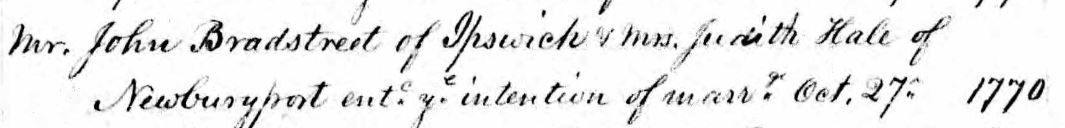 Mr. John Bradstreet of Ipswich & Mrs. Judith Hale of
Newburyport ent.d ye intention of marr.ge Oct. 27. 1770